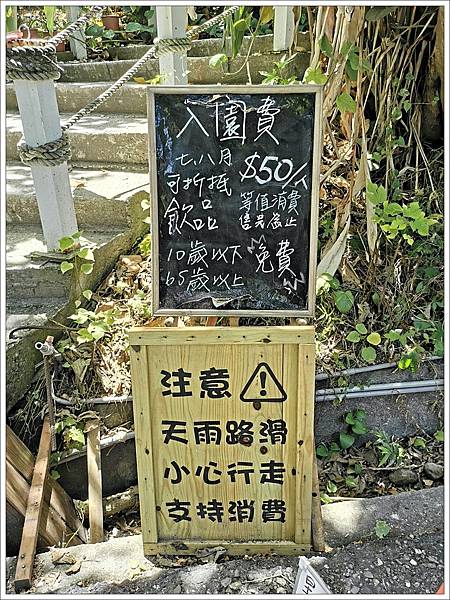 入園費
七、八月 $50/人
可折抵 等值消費
飲品 售完為止
10歲以下 免費
65歲以上
注意 !
天雨路滑
小心行走
支持消費